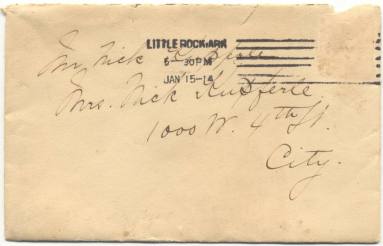 LITTLE ROCK, ARK
6-30 PM
JAN 15-14
Mr Nick Kupferle
Mrs. Nick Kupferle.
1000 W. 4th St.
City.